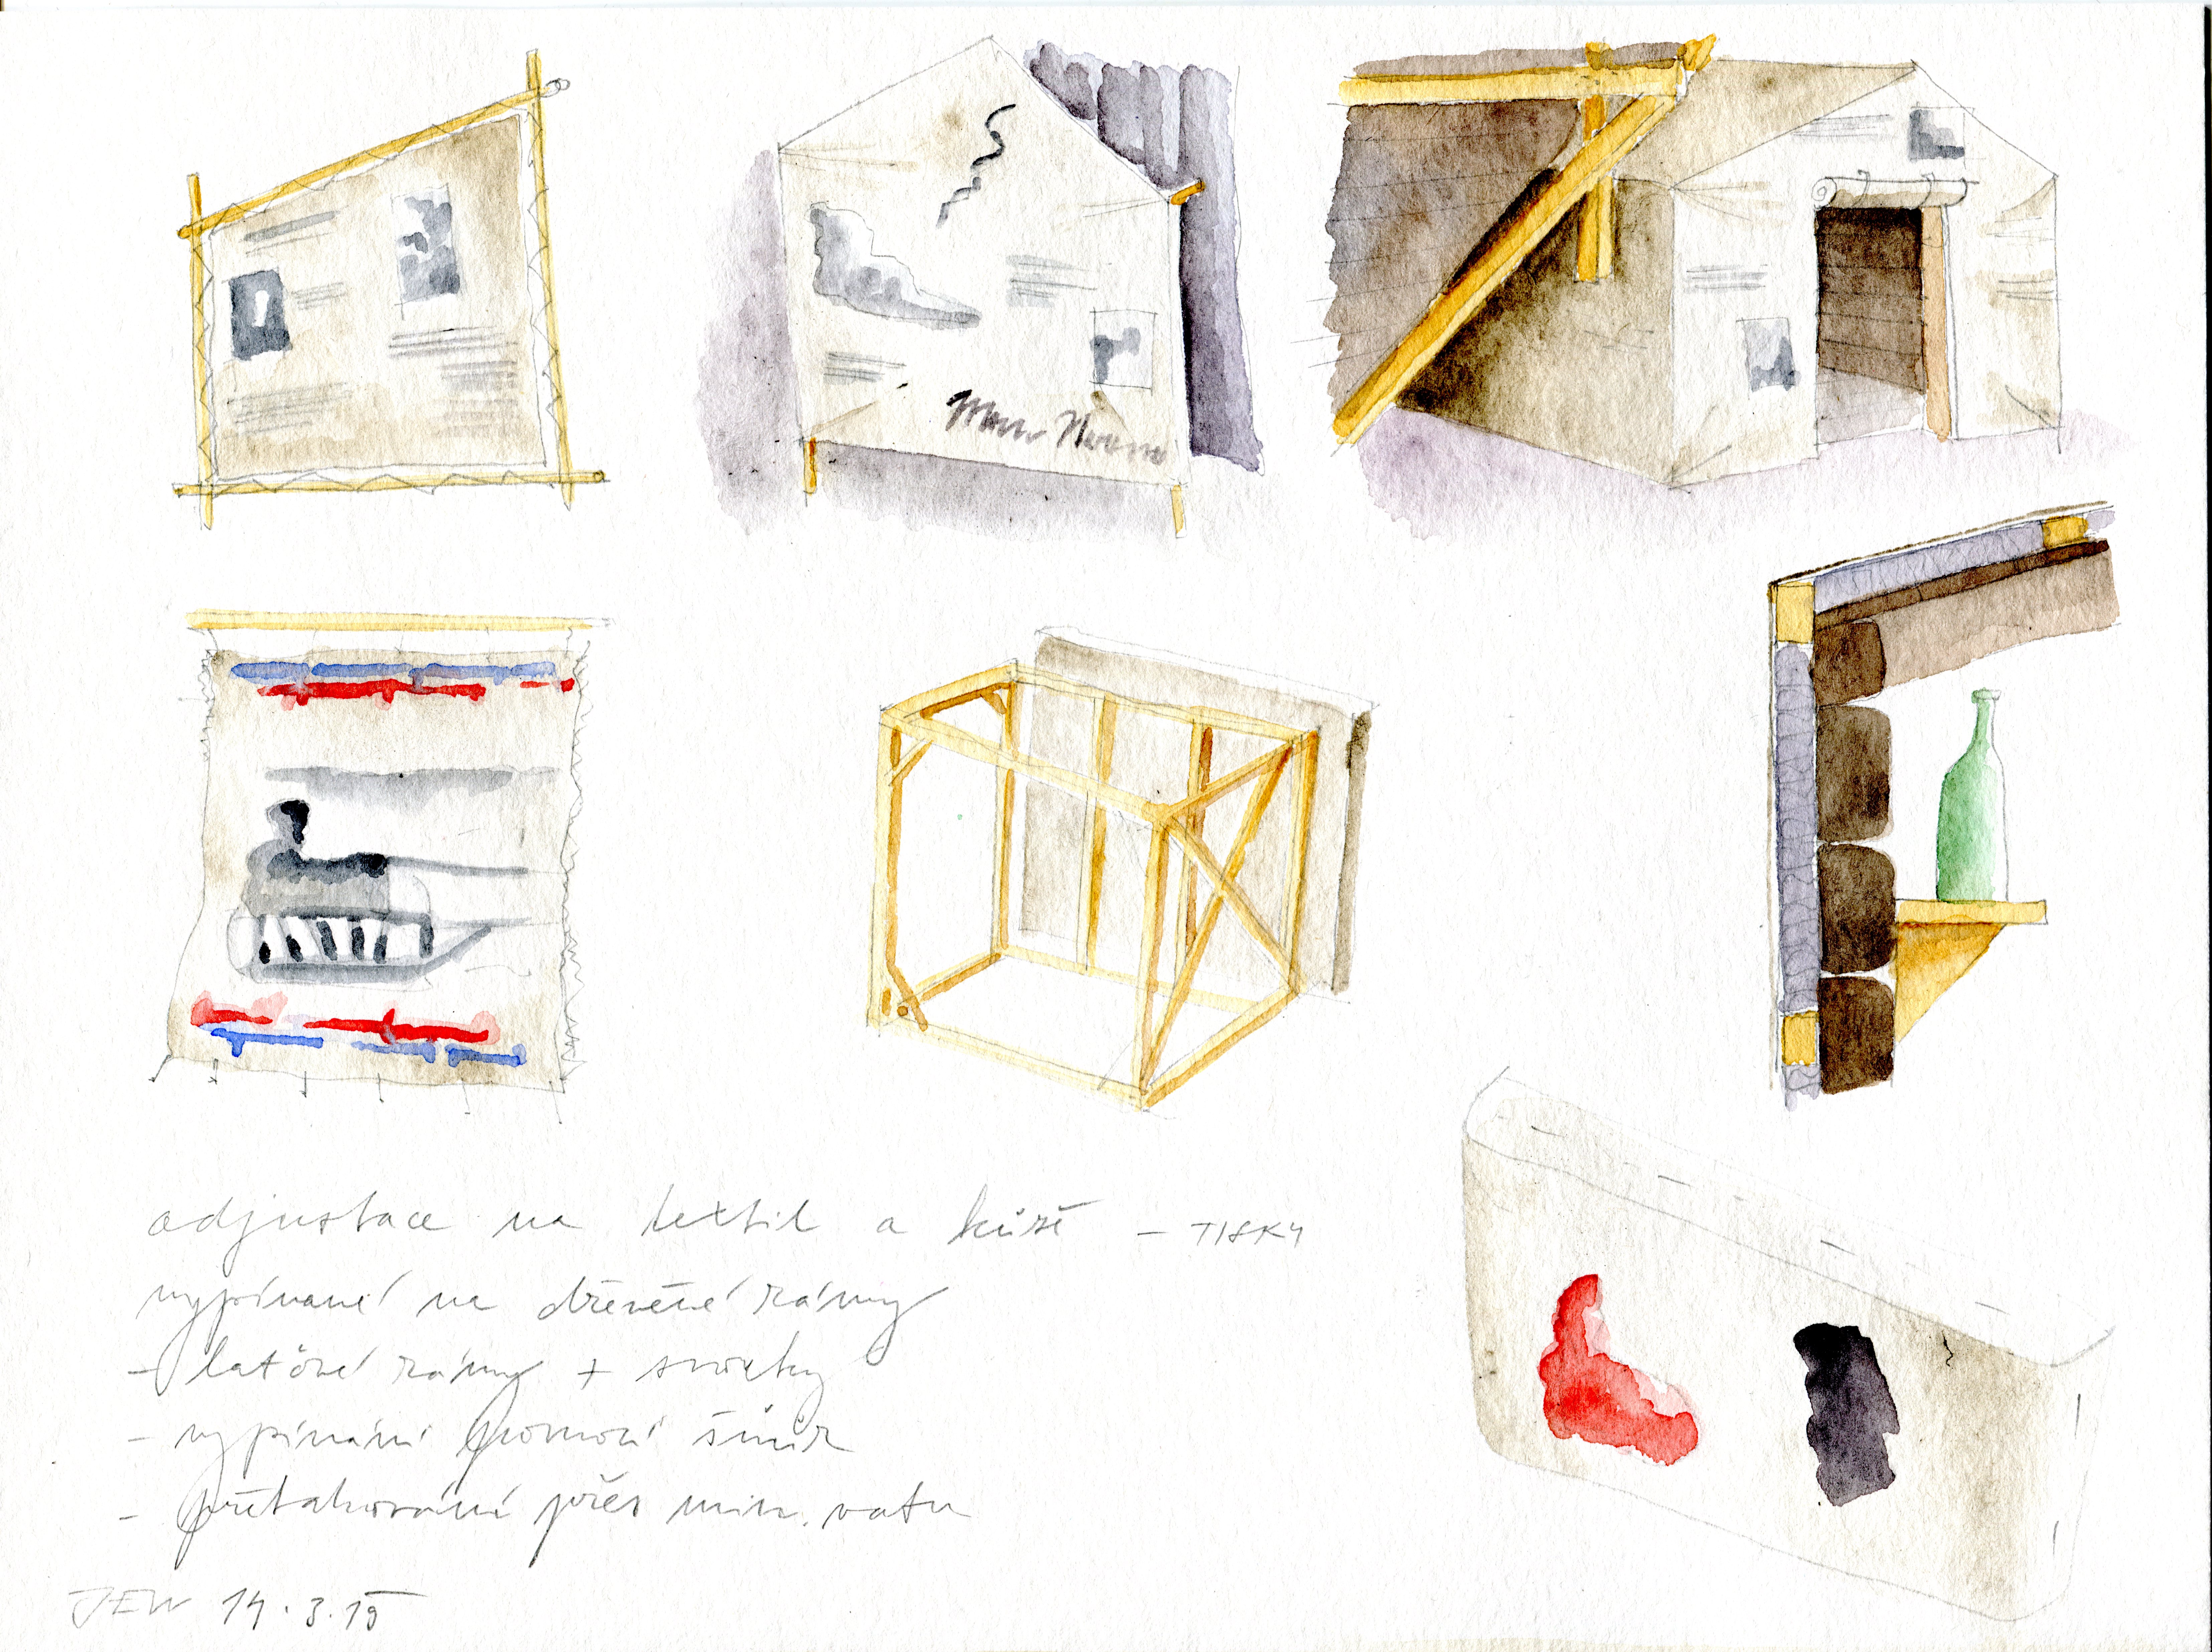 adjustace na textil a kůži – TISKY
vypínané na dřevěné rámy
– laťové rámy + svorky
– vypínání pomocí šňůr
– přetahování přes min. vatu
JEW 14.3.15